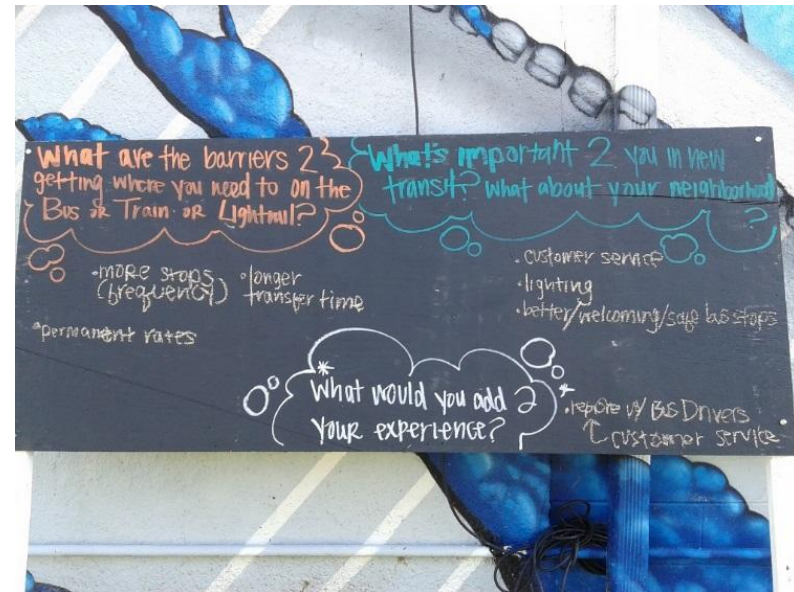 What are the barriers 2
getting where you need to on the
Bus or Train or Lightrail?
• more stops
(frequency)
• longer
transfer time
• permanent rates
What's important 2 you in new
transit? What about your neighborhood
?
• customer service
• lighting
• better/welcoming/safe bus stops
* What would you add 2 *
your experience?
• repore w/ Bus Drivers
customer service